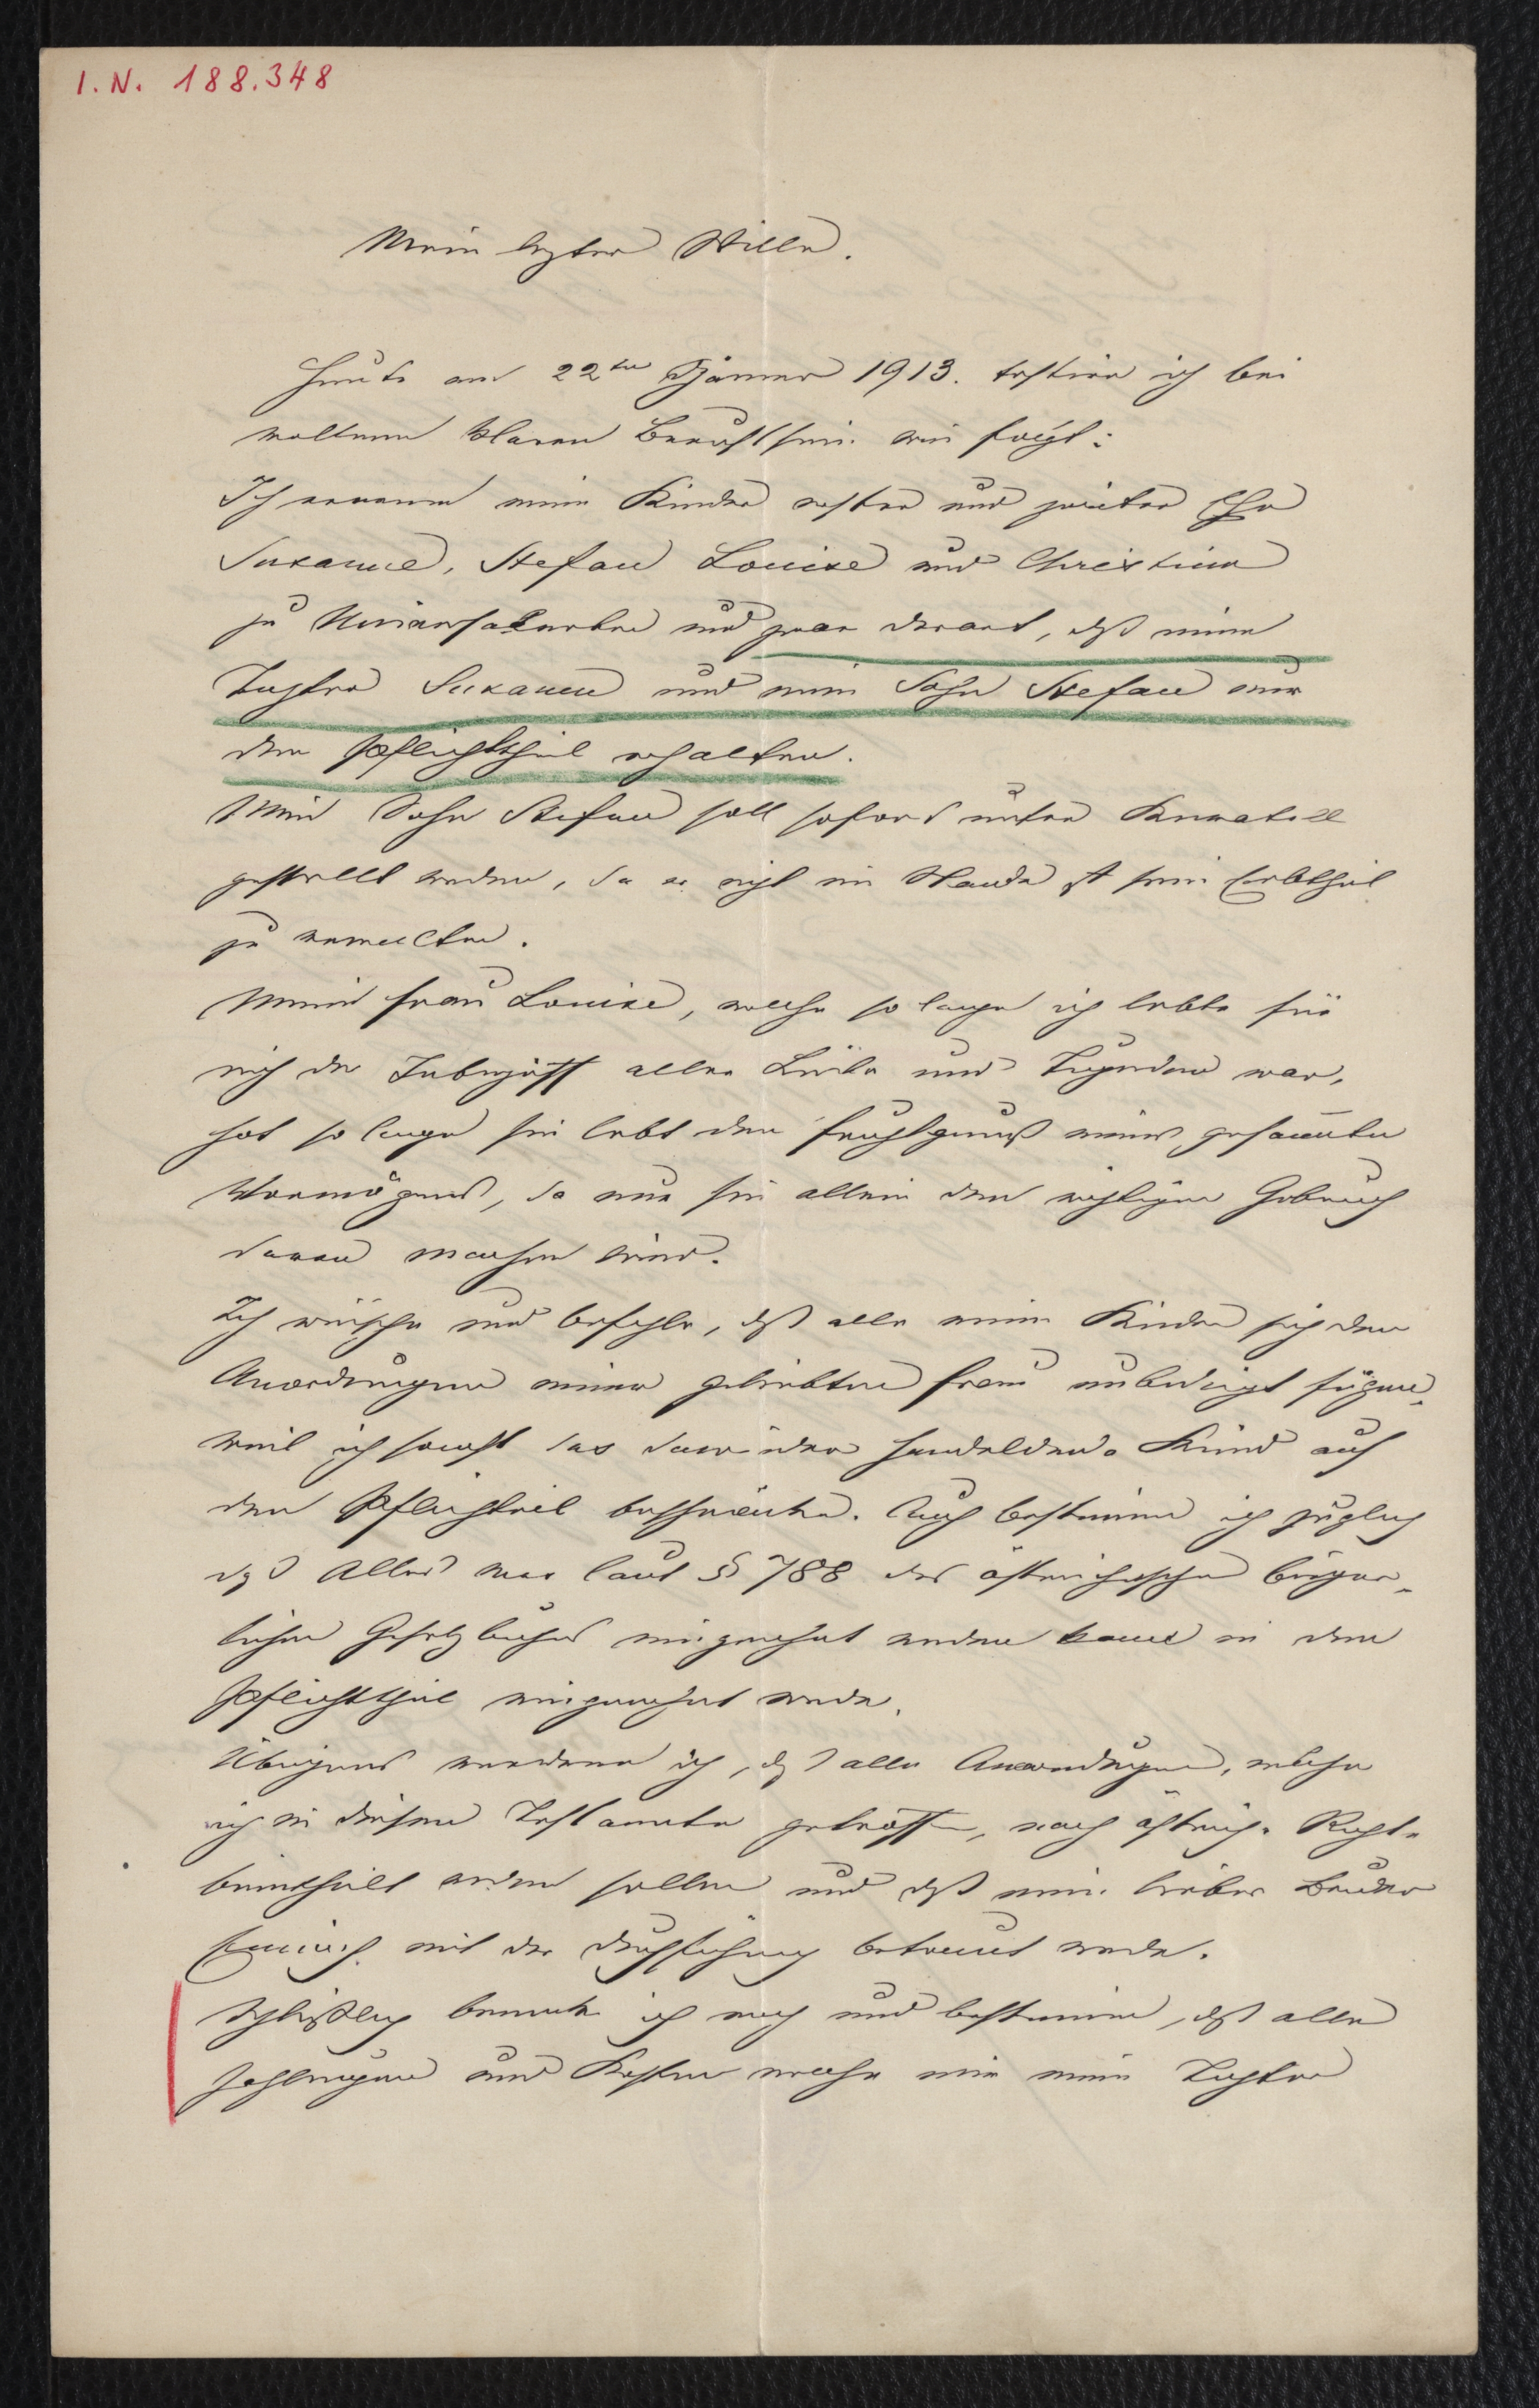 I. N. 188.348
Mein letzter Wille.
Heute am 22ten Jänner 1913. testire ich bei
vollem klaren Bewußtsein wie folgt:
Ich ernenne meine Kinder erster und zweiter Ehe
Susanne, Stefan Louise und Christine
zu Universalerben und zwar derart, daß meine
Tochter Susanne und mein Sohn Stefan nur
den Pflichttheil erhalten.
Mein Sohn Stefan soll sofort unter Kuratell
gestellt werden, da er nicht im Stande ist sein Erbtheil
zu verwalten.
Meine Frau Louise, welche so lange ich lebte für
mich der Inbegriff aller Liebe und Tugenden war,
hat so lange sie lebt den Fruchtgenuß meines gesammten
Vermögens, da nur sie allein den richtigen Gebrauch
davon machen wird.
Ich wünsche und befehle, daß alle meine Kinder sich den
Anordnungen meiner geliebten Frau unbedingt fügen,
weil ich sonst das dawider handelnde Kind auf
den Pflichtteil beschränke. Auch bestimme ich zugleich
daß Alles was laut § 788 des östreichischen bürger-
lichen Gesetzbuches eingerechnet werden kann in den
Pflichttheil eingerechnet werde.
Übrigens verordne ich, daß alle Anordnungen, welche
ich in diesem Testamente getroffen, nach östreich. Recht.
beurtheilt werden sollen und daß mein lieber Bruder
Heinrich mit der Durchführung betraut werde.
Schließlich bemerke ich noch und bestimme, daß alle
Zahlungen und Kosten welche mir meine Tochter